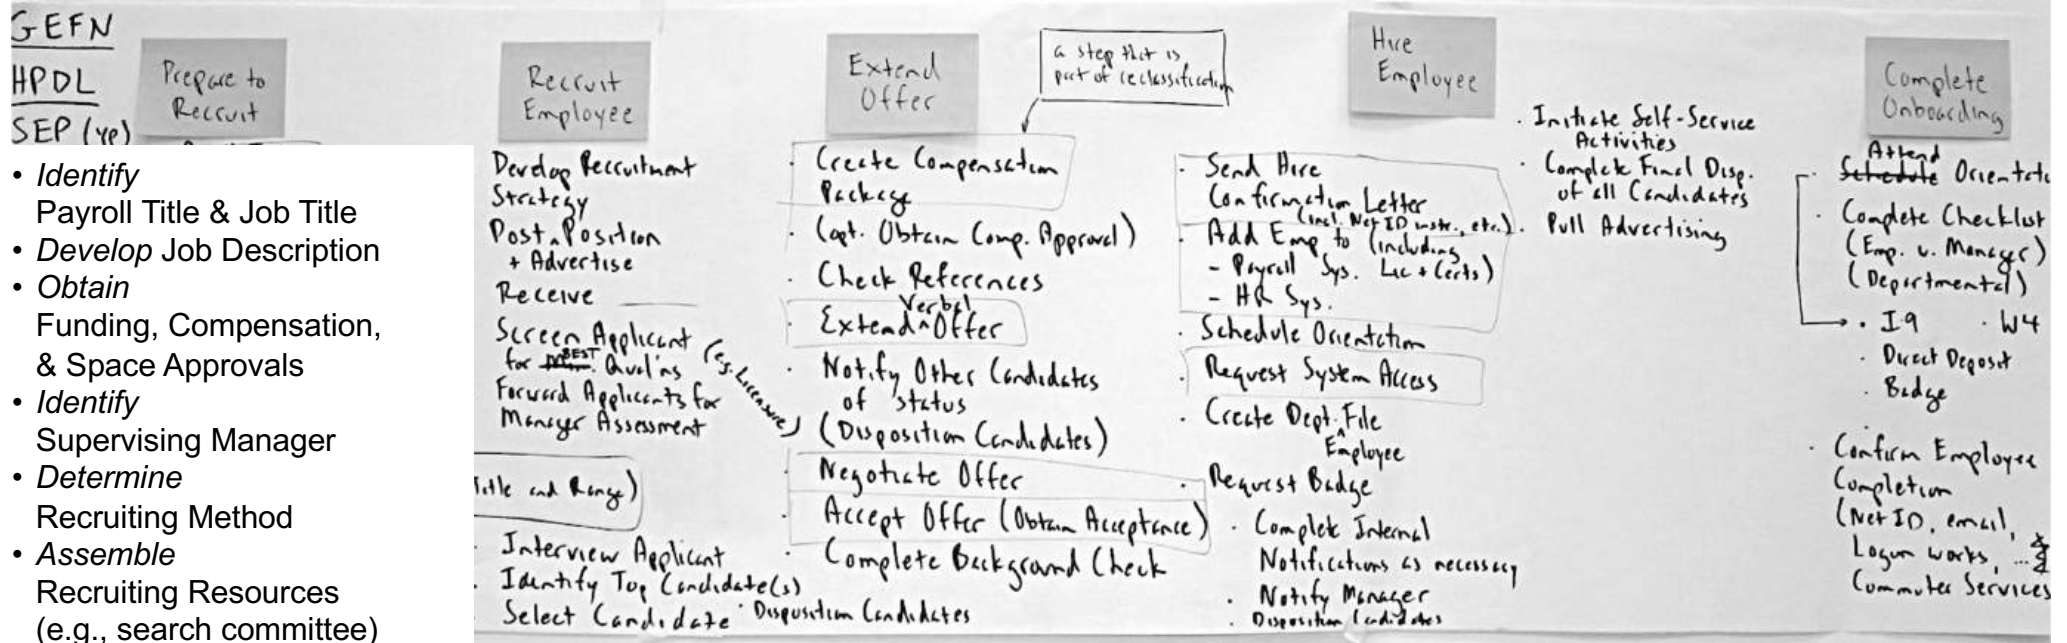 GEFN
HPDL
SEP (yp)
Prepare to
Recruit
• Identify
Payroll Title & Job Title
• Develop Job Description
• Obtain
Funding, Compensation,
& Space Approvals
• Identify
Supervising Manager
• Determine
Recruiting Method
• Assemble
Recruiting Resources
(e.g., search committee)
Recruit
Employee
Develop Recruitment
Strategy
Post Position
+ Advertise
Receive
Screen Applicant
for BEST Qual'ns
(e.g. Licensure)
Forward Applicants for
Manager Assessment
Title and Range)
· Interview Applicant
· Identify Top Candidate(s)
· Select Candidate · Disposition Candidates
Extend
Offer
a step that is
part of reclassification
· Create Compensation
Package
· (opt. Obtain Comp. Approval)
· Check References
· Extend Verbal Offer
· Notify Other Candidates
of status
(Disposition Candidates)
· Negotiate Offer
· Accept Offer (Obtain Acceptance)
· Complete Background Check
Hire
Employee
· Send Hire
Confirmation Letter
(incl. Net ID instr., etc.)
· Add Emp to (including
- Payroll Sys. Lic + Certs)
- HR Sys.
· Schedule Orientation
· Request System Access
· Create Dept. Employee File
· Request Badge
· Complete Internal
Notifications as necessary
· Notify Manager
· Disposition Candidates
· Initiate Self-Service
Activities
· Complete Final Disp.
of all Candidates
· Pull Advertising
Complete
Onboarding
Attend
· Schedule Orientatio
· Complete Checklist
(Emp. v. Manager)
(Departmental)
· I9 · W4
· Direct Deposit
· Badge
· Confirm Employee
Completion
(Net ID, email,
Logon works, ...
Commuter Services